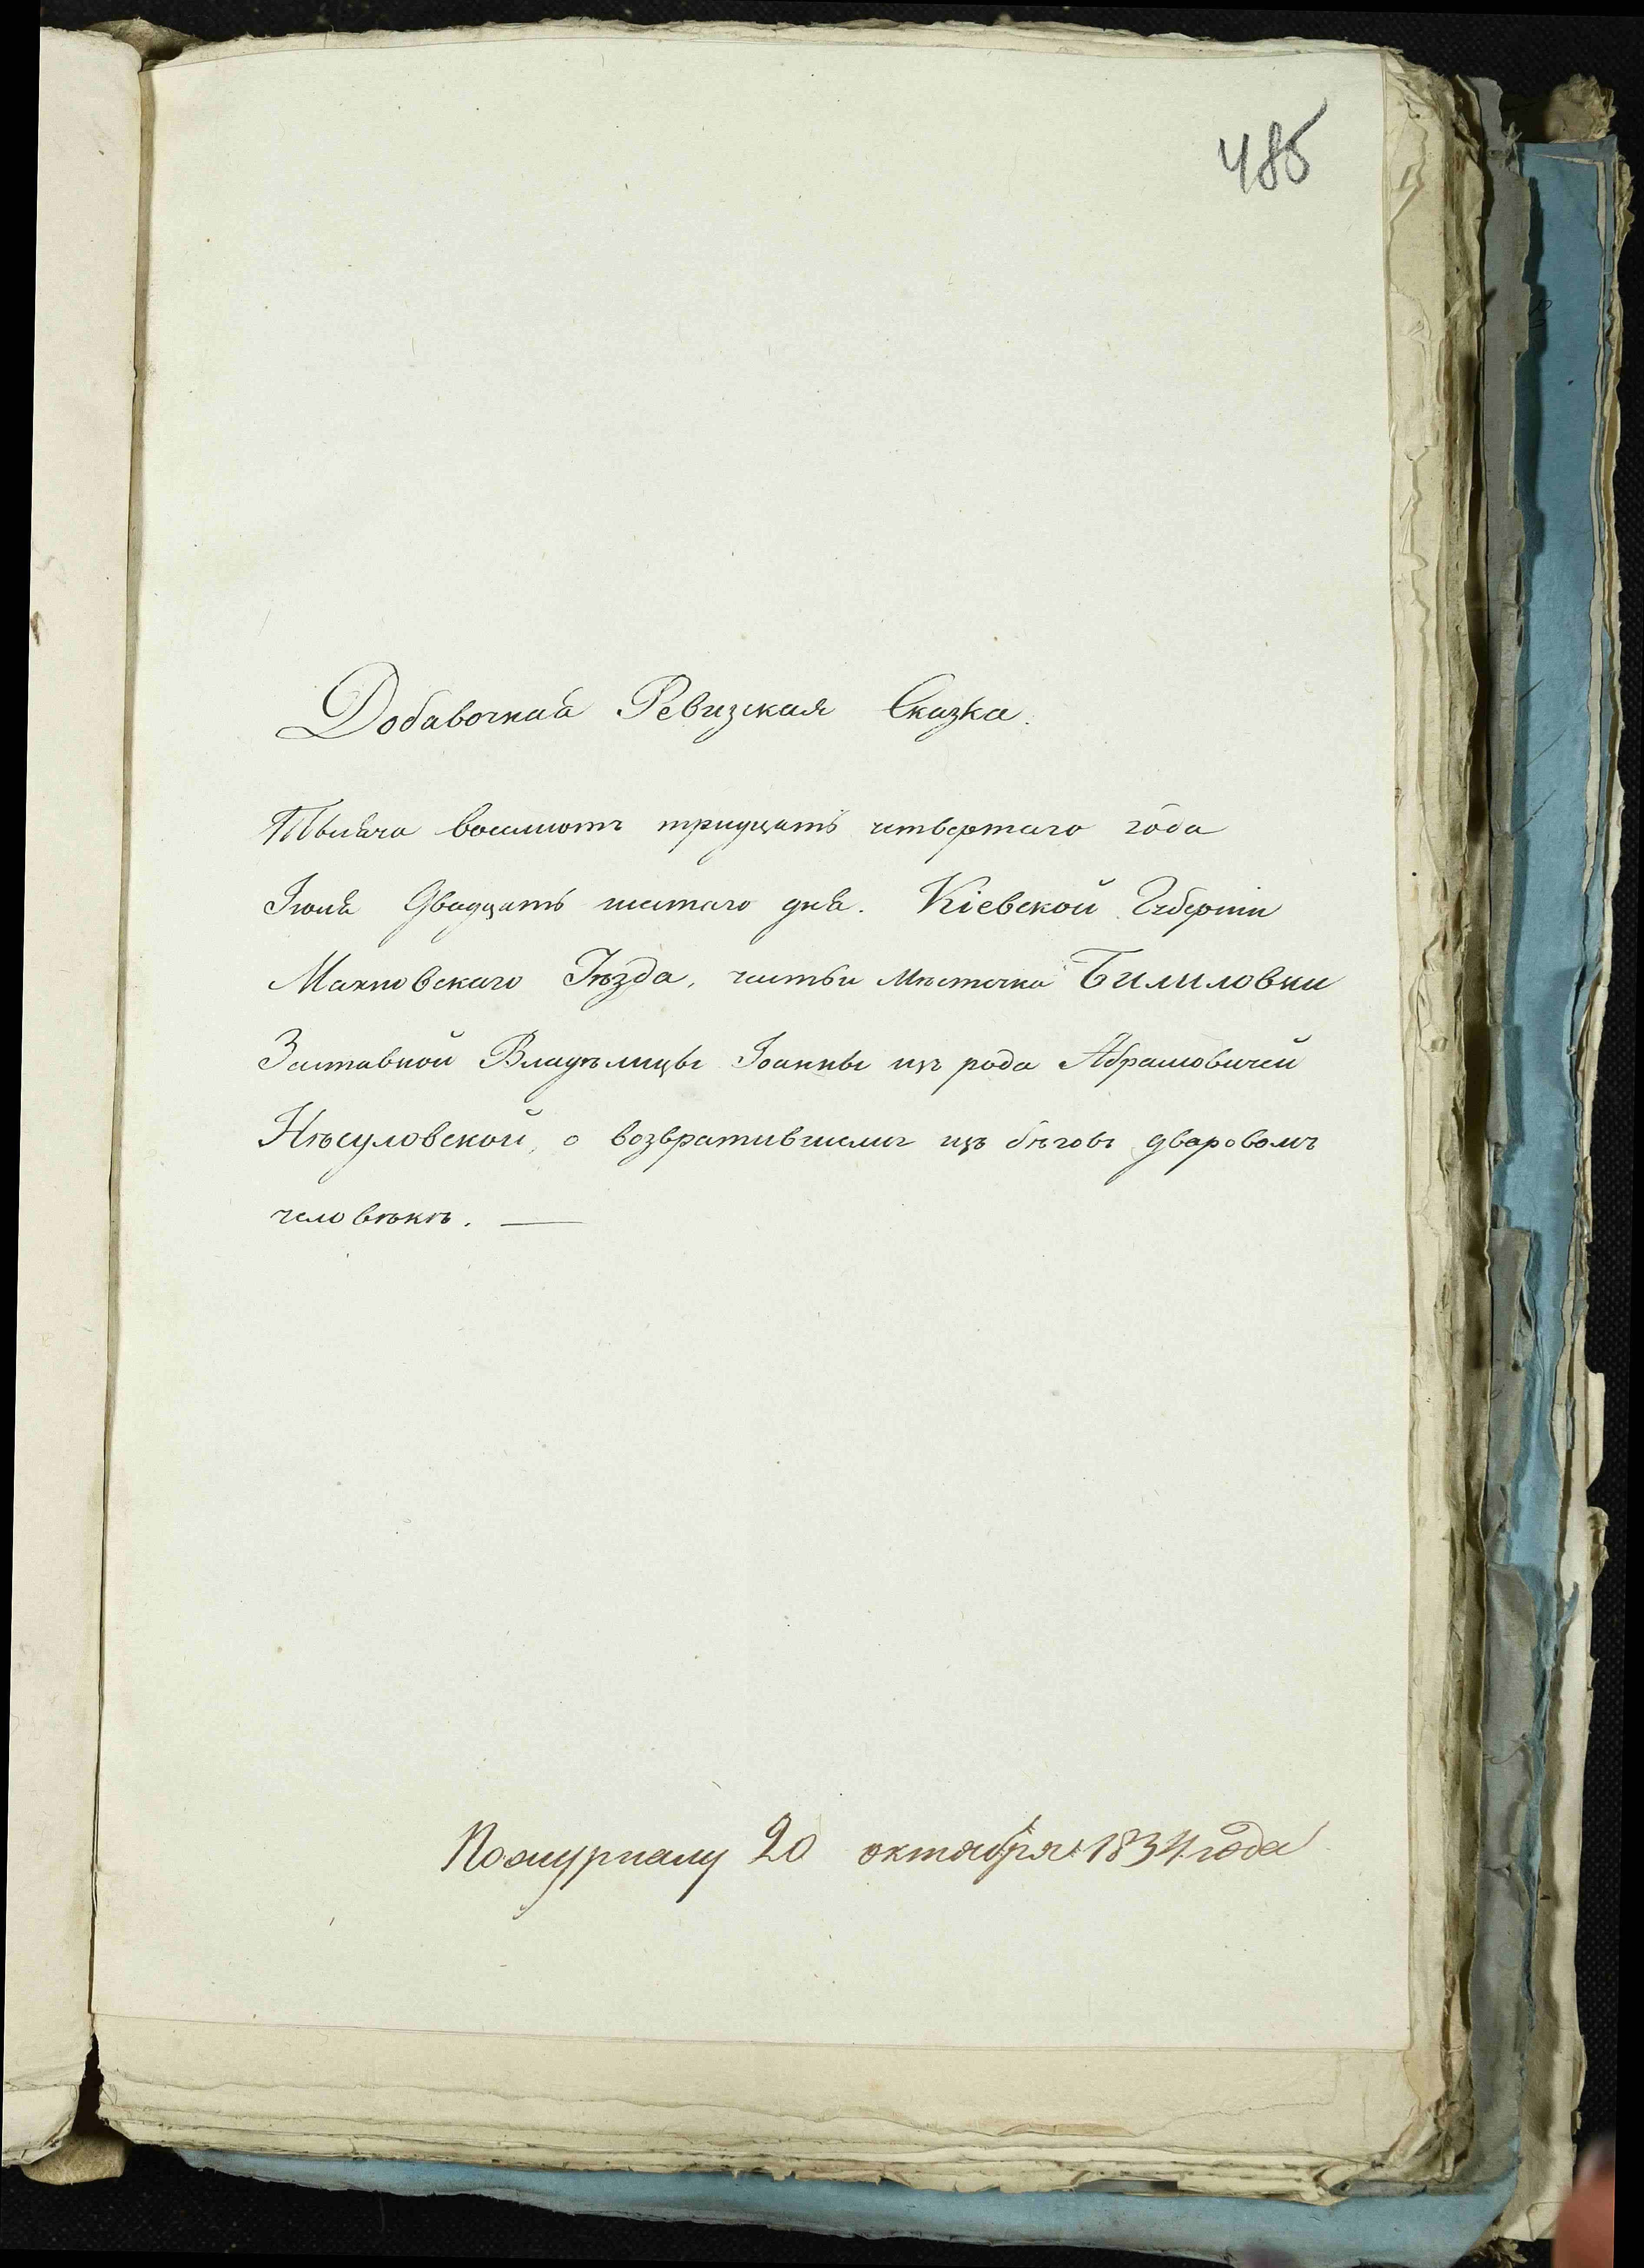 485
Добавочная Ревизская Сказка.
Тысяча восемьсотъ тридцать четвертаго года
Іюня Двадцать шестаго дня. Кіевской Губерніи
Махновскаго Уѣзда, части Мѣстечка Билиловки
Заставной Владѣлицы Іоанны изъ рода Абрамовичей
Нѣсуловской, о возвратившемся изъ бѣговъ дворовомъ
человѣкѣ. —
По журналу 20 октября 1834 года